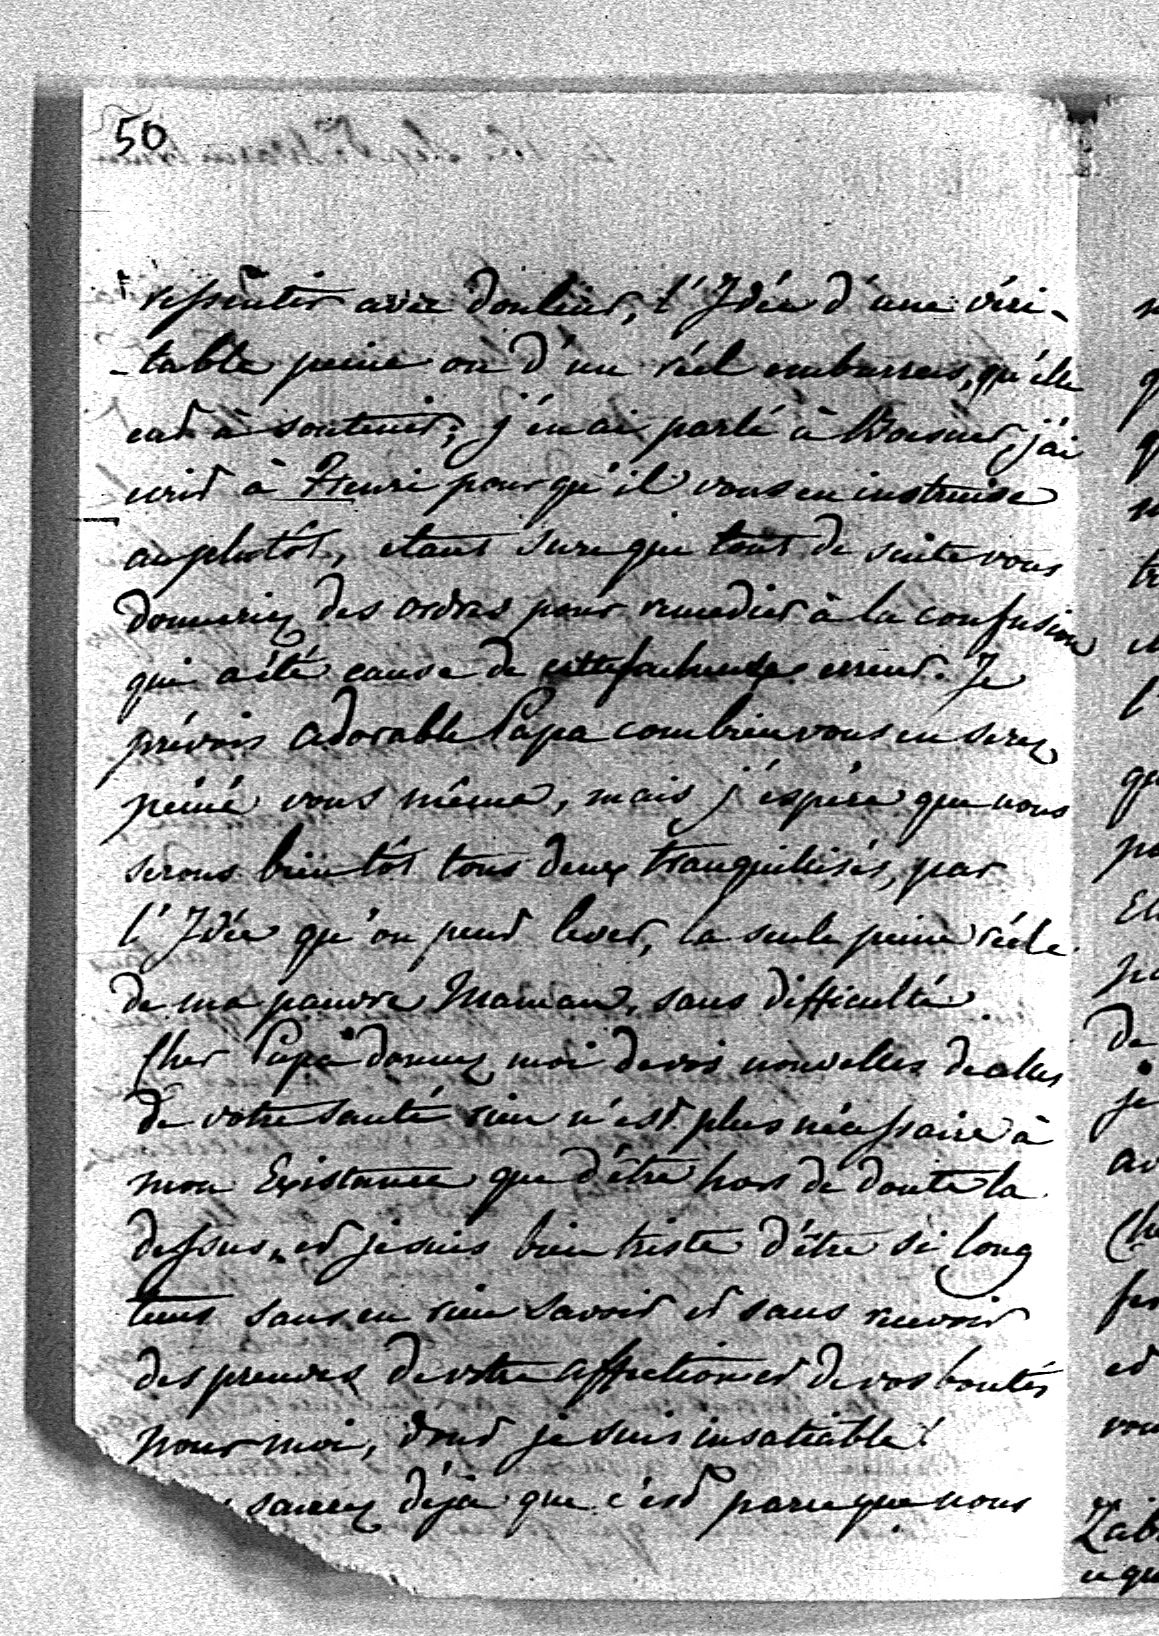 50
ressentir avec douleur, l'Idée d'une véri-
-table peine ou d'un réel embarras, qu'elle
eud à soutenir; j'en ai parlé à Boisner, j'ai
ecrid à Henri pour qu'il vous en instruise
au plutôt, etant sure que tout de suite vous
donneriez des ordres pour remedier à la confusion
qui a été cause de cette facheuse erreur. Je
prévois adorable Papa combien vous en serez
péiné vous même, mais j'éspére que nous
serons bientôt tous deux tranquilisés, par
l'Idée qu'on peud lever, la seule peine réele
de ma pauvre Maman, sans difficulté.
Cher Papa donnez moi de vos nouvelles de celles
de votre santé rien n'est plus nécessaire à
mon Existance que d'être hors de doute la
dessus, et je suis bien triste d'être si long
tems sans en rien savoir et sans recevoir
des preuves de votre affection et de vos bontés
pour moi, dond je suis insatiable!
savez déja que c'est parceque nous